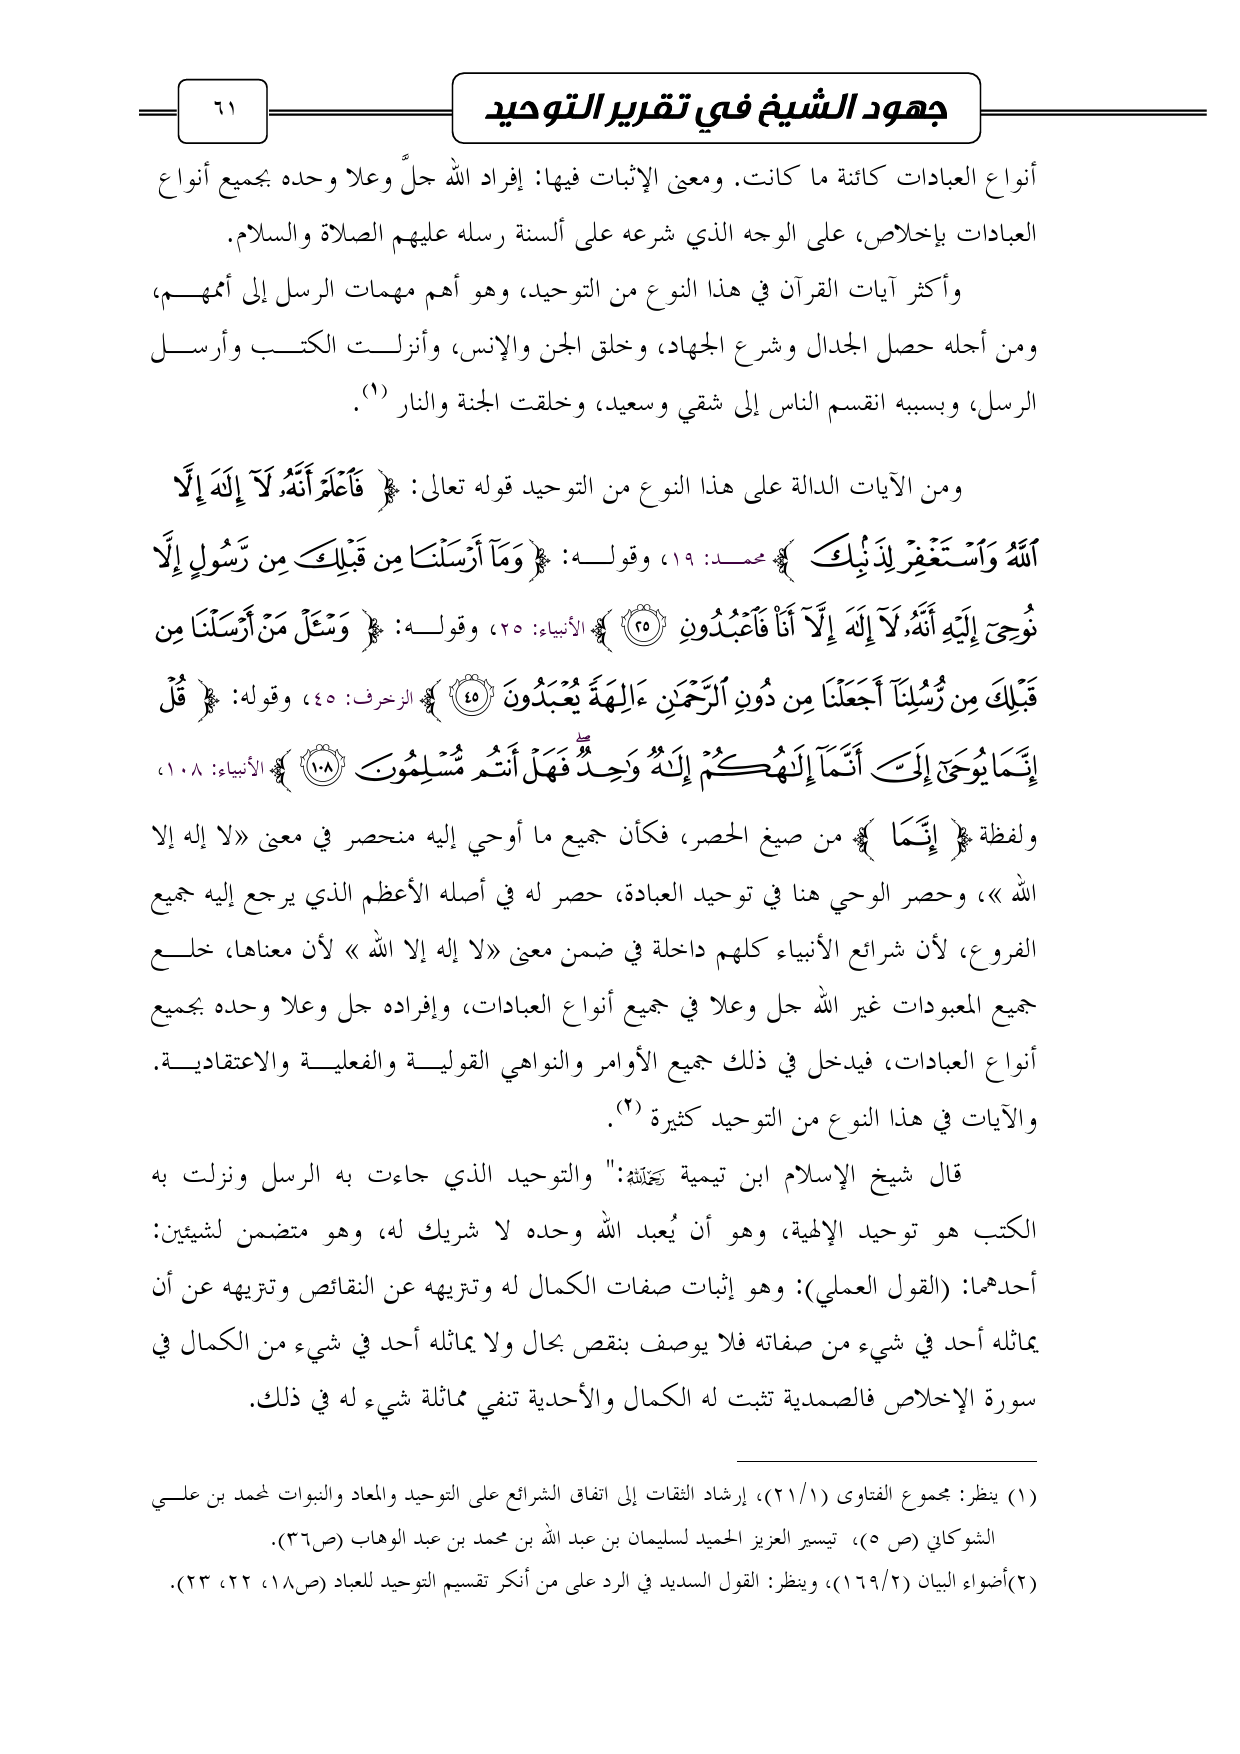 جهود الشيخ في تقرير التوحيد
٦١
أنواع العبادات كائنة ما كانت. ومعنى الإثبات فيها: إفراد الله جلَّ وعلا وحده بجميع أنواع
العبادات بإخلاص، على الوجه الذي شرعه على ألسنة رسله عليهم الصلاة والسلام.
وأكثر آيات القرآن في هذا النوع من التوحيد، وهو أهم مهمات الرسل إلى أممهـــم،
ومن أجله حصل الجدال وشرع الجهاد، وخلق الجن والإنس، وأنزلـــت الكتـــب وأرســـل
الرسل، وبسببه انقسم الناس إلى شقي وسعيد، وخلقت الجنة والنار (١).
ومن الآيات الدالة على هذا النوع من التوحيد قوله تعالى: ﴿ فَٱعۡلَمۡ أَنَّهُۥ لَآ إِلَٰهَ إِلَّا
ٱللَّهُ وَٱسۡتَغۡفِرۡ لِذَنۢبِكَ ﴾ محمـــد: ١٩، وقولـــه: ﴿ وَمَآ أَرۡسَلۡنَا مِن قَبۡلِكَ مِن رَّسُولٍ إِلَّا
نُوحِيٓ إِلَيۡهِ أَنَّهُۥ لَآ إِلَٰهَ إِلَّآ أَنَا۠ فَٱعۡبُدُونِ ٢٥ ﴾ الأنبياء: ٢٥، وقولـــه: ﴿ وَسۡـَٔلۡ مَنۡ أَرۡسَلۡنَا مِن
قَبۡلِكَ مِن رُّسُلِنَآ أَجَعَلۡنَا مِن دُونِ ٱلرَّحۡمَٰنِ ءَالِهَةٗ يُعۡبَدُونَ ٤٥ ﴾ الزخرف: ٤٥، وقوله: ﴿ قُلۡ
إِنَّمَا يُوحَىٰٓ إِلَيَّ أَنَّمَآ إِلَٰهُكُمۡ إِلَٰهٞ وَٰحِدٞۖ فَهَلۡ أَنتُم مُّسۡلِمُونَ ١٠٨ ﴾ الأنبياء: ١٠٨،
ولفظة ﴿ إِنَّمَا ﴾ من صيغ الحصر، فكأن جميع ما أوحي إليه منحصر في معنى «لا إله إلا
الله »، وحصر الوحي هنا في توحيد العبادة، حصر له في أصله الأعظم الذي يرجع إليه جميع
الفروع، لأن شرائع الأنبياء كلهم داخلة في ضمن معنى «لا إله إلا الله » لأن معناها، خلـــع
جميع المعبودات غير الله جل وعلا في جميع أنواع العبادات، وإفراده جل وعلا وحده بجميع
أنواع العبادات، فيدخل في ذلك جميع الأوامر والنواهي القوليـــة والفعليـــة والاعتقاديـــة.
والآيات في هذا النوع من التوحيد كثيرة (٢).
قال شيخ الإسلام ابن تيمية رحمه الله:" والتوحيد الذي جاءت به الرسل ونزلت به
الكتب هو توحيد الإلهية، وهو أن يُعبد الله وحده لا شريك له، وهو متضمن لشيئين:
أحدهما: (القول العملي): وهو إثبات صفات الكمال له وتنزيهه عن النقائص وتنزيهه عن أن
يماثله أحد في شيء من صفاته فلا يوصف بنقص بحال ولا يماثله أحد في شيء من الكمال في
سورة الإخلاص فالصمدية تثبت له الكمال والأحدية تنفي مماثلة شيء له في ذلك.
(١) ينظر: مجموع الفتاوى (٢١/١)، إرشاد الثقات إلى اتفاق الشرائع على التوحيد والمعاد والنبوات لمحمد بن علـــي
الشوكاني (ص ٥)، تيسير العزيز الحميد لسليمان بن عبد الله بن محمد بن عبد الوهاب (ص٣٦).
(٢)أضواء البيان (١٦٩/٢)، وينظر: القول السديد في الرد على من أنكر تقسيم التوحيد للعباد (ص١٨، ٢٢، ٢٣).